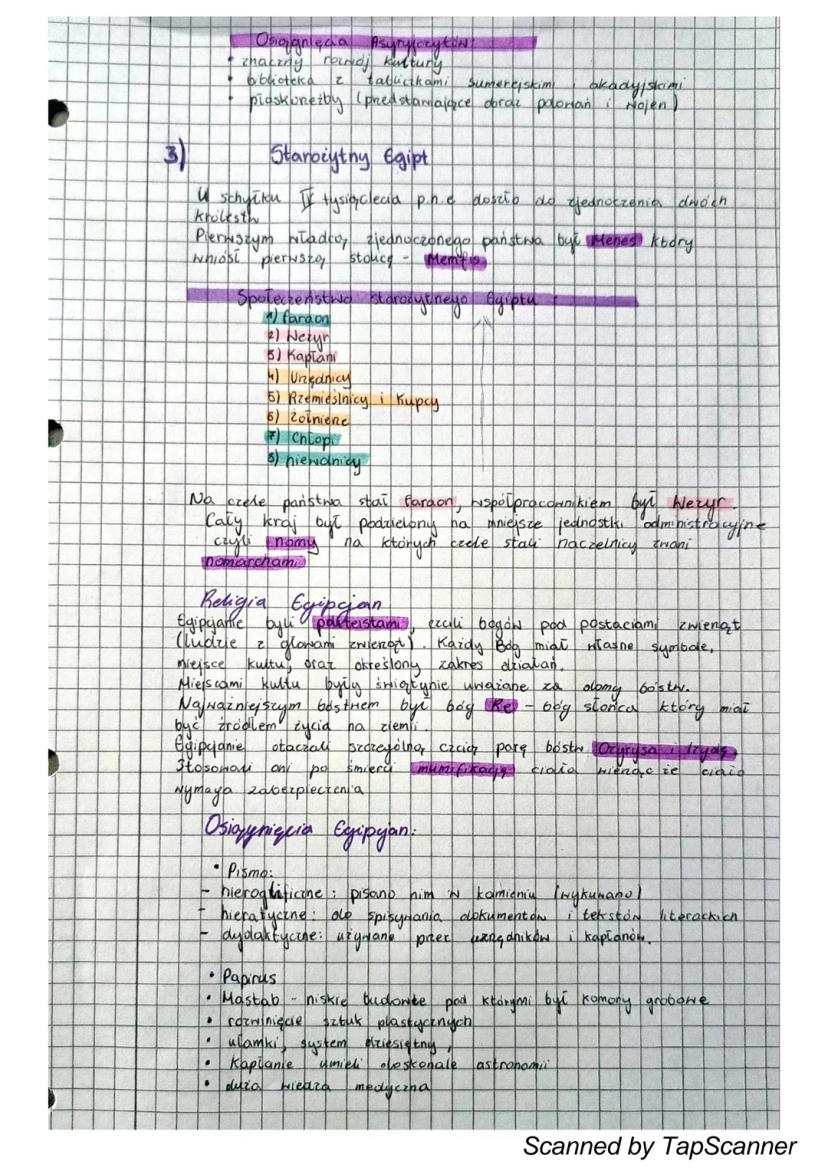 Osiągnięcia Asyryjczytów:
• znaczny rozwój kultury
• biblioteka z tabliczkami sumeryjskimi i akadyjskimi
• płaskorzeźby (przedstawiające obraz polowań i wojen)
3) Starożytny Egipt
U schyłku IV tysiąclecia p.n.e doszło do zjednoczenia dwóch
królestw
Pierwszym władcą zjednoczonego państwa był Menes który
wniósł pierwszą stolicę - Memfis
Społeczeństwo starożytnego Egiptu
1) faraon
2) Wezyr
3) Kapłani
4) Urzędnicy
5) Rzemieślnicy i Kupcy
6) Żołnierze
7) Chłopi
8) niewolnicy
Na czele państwa stał faraon, współpracownikiem był Wezyr.
Cały kraj był podzielony na mniejsze jednostki administracyjne
czyli nomy na których czele stali naczelnicy zwani
nomarchami
Religia Egipcjan
Egipcjanie byli politeistami, czcili bogów pod postaciami zwierząt
(ludzie z głowami zwierząt). Każdy Bóg miał własne symbole,
miejsce kultu, oraz określony zakres działań.
Miejscami kultu były świątynie uważane za domy bóstw.
Najważniejszym bóstwem był bóg Re - bóg słońca który miał
być źródłem życia na ziemi.
Egipcjanie otaczali szczególną czcią parę bóstw Ozyrysa i Izydę
Stosowali oni po śmierci mumifikację ciała wierząc że ciało
wymaga zabezpieczenia
Osiągnięcia Egipcjan:
• Pismo:
- hieroglificzne: pisano nim w kamieniu (wykuwano)
- hieratyczne: do spisywania dokumentów i tekstów literackich
- dydaktyczne: używane przez urzędników i kapłanów.
• Papirus
• Mastab - niskie budowle pod którymi był komory grobowe
• rozwinięcie sztuk plastycznych
• ułamki, system dziesiętny,
• Kapłanie umieli doskonale astronomii
• duża wiedza medyczna
Scanned by TapScanner